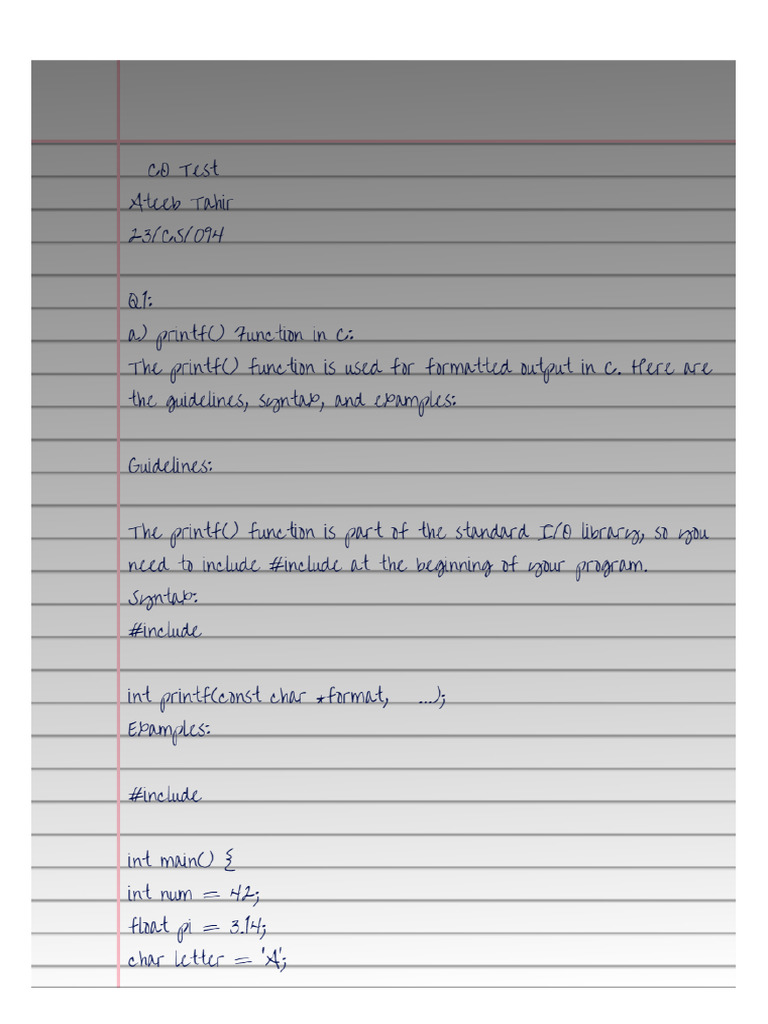 CO Test
Ateeb Tahir
23/CS/094
Q1:
a) printf() Function in C:
The printf() function is used for formatted output in C. Here are
the guidelines, syntax, and examples:
Guidelines:
The printf() function is part of the standard I/O library, so you
need to include #include at the beginning of your program.
Syntax:
#include
int printf(const char *format, ...);
Examples:
#include
int main() {
int num = 42;
float pi = 3.14;
char letter = 'A';